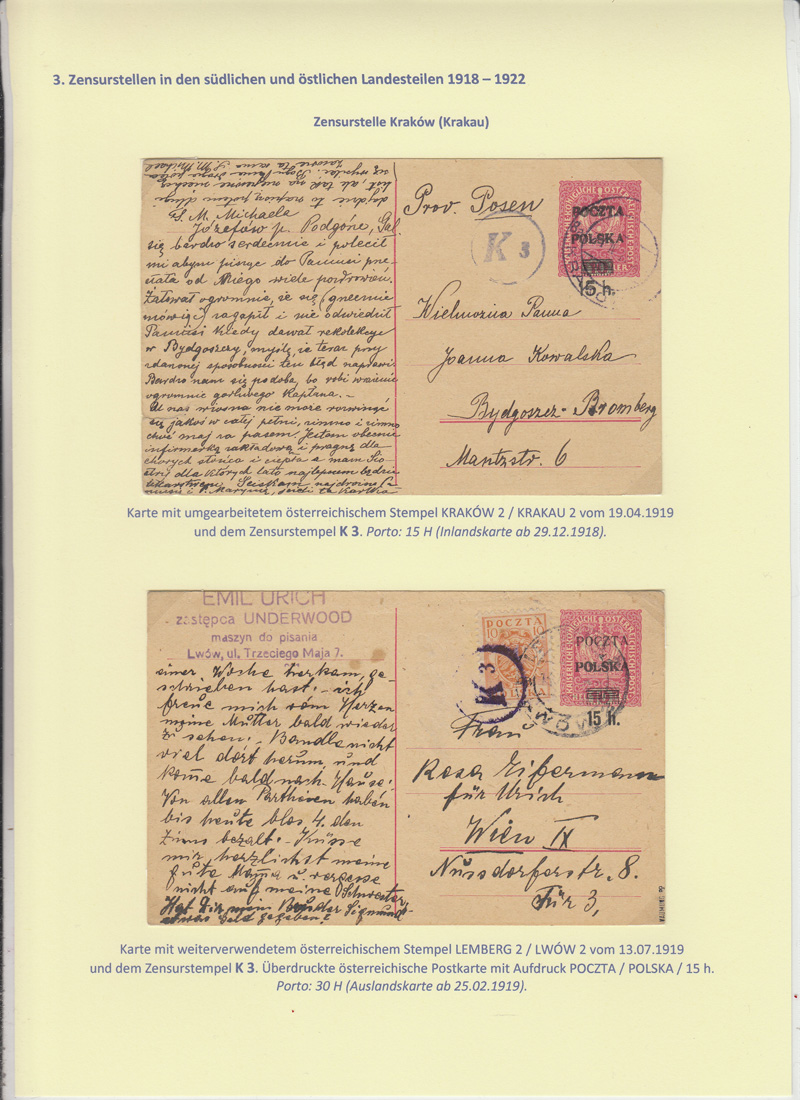 3. Zensurstellen in den südlichen und östlichen Landesteilen 1918 – 1922
Zensurstelle Kraków (Krakau)
S. M. Michaela
Józefów p. Podgórze, Gal.
się bardzo serdecznie i polecił
mi abym pisząc do Panusi prze-
słała od Niego wiele pozdrowień.
Żałował ogromnie, że się (grzecznie
mówiąc) zagapił i nie odwiedził
Panusi kiedy dawał rekolekcye
w Bydgoszczy, myślę, że teraz przy
zdarzonej sposobności ten błąd naprawi.
Bardzo nam się podoba, bo robi wrażenie
ogromnie gorliwego Kapłana. –
U nas wiosna nie może rozwinąć
się jakoś w całej pełni, zimno i zimno
choć maj za pasem. Jestem obecnie
infirmerką zakładową i pragnę dla
chorych słońca i ciepła a mam Sio
stry dla których lato najlepszem będzie
lekarstwem.
Prov. Posen
K 3
POCZTA
POLSKA
15 h.
Wielmożna Panna
Joanna Kowalska
Bydgoszcz - Bromberg
Mantzstr. 6
Karte mit umgearbeitetem österreichischem Stempel KRAKÓW 2 / KRAKAU 2 vom 19.04.1919
und dem Zensurstempel K 3. Porto: 15 H (Inlandskarte ab 29.12.1918).
EMIL URICH
zastępca UNDERWOOD
maszyn do pisania
Lwów, ul. Trzeciego Maja 7.
einer Woche hierkam, ge-
schrieben hast. - ich
freue mich vom Herzen
meine Mutter bald wieder
zu sehen. - Bandle nicht
viel dort herum, und
kome bald nach Hause.
Von allen Partheien haben
bis heute blos 4. den
Zins bezalt. - Küsse
mir herzlichst meine
gute Mama u. vergesse
nicht auf meine Schwester
Hat Dir mein Bruder Sigmund
etwas Geld gegeben?
POCZTA
10 10
K 3
POCZTA
POLSKA
15 h.
LWÓW
Frau
Rosa Eifermann
für Urich
Wien IX
Nussdorferstr. 8.
Tür 3,
Karte mit weiterverwendetem österreichischem Stempel LEMBERG 2 / LWÓW 2 vom 13.07.1919
und dem Zensurstempel K 3. Überdruckte österreichische Postkarte mit Aufdruck POCZTA / POLSKA / 15 h.
Porto: 30 H (Auslandskarte ab 25.02.1919).